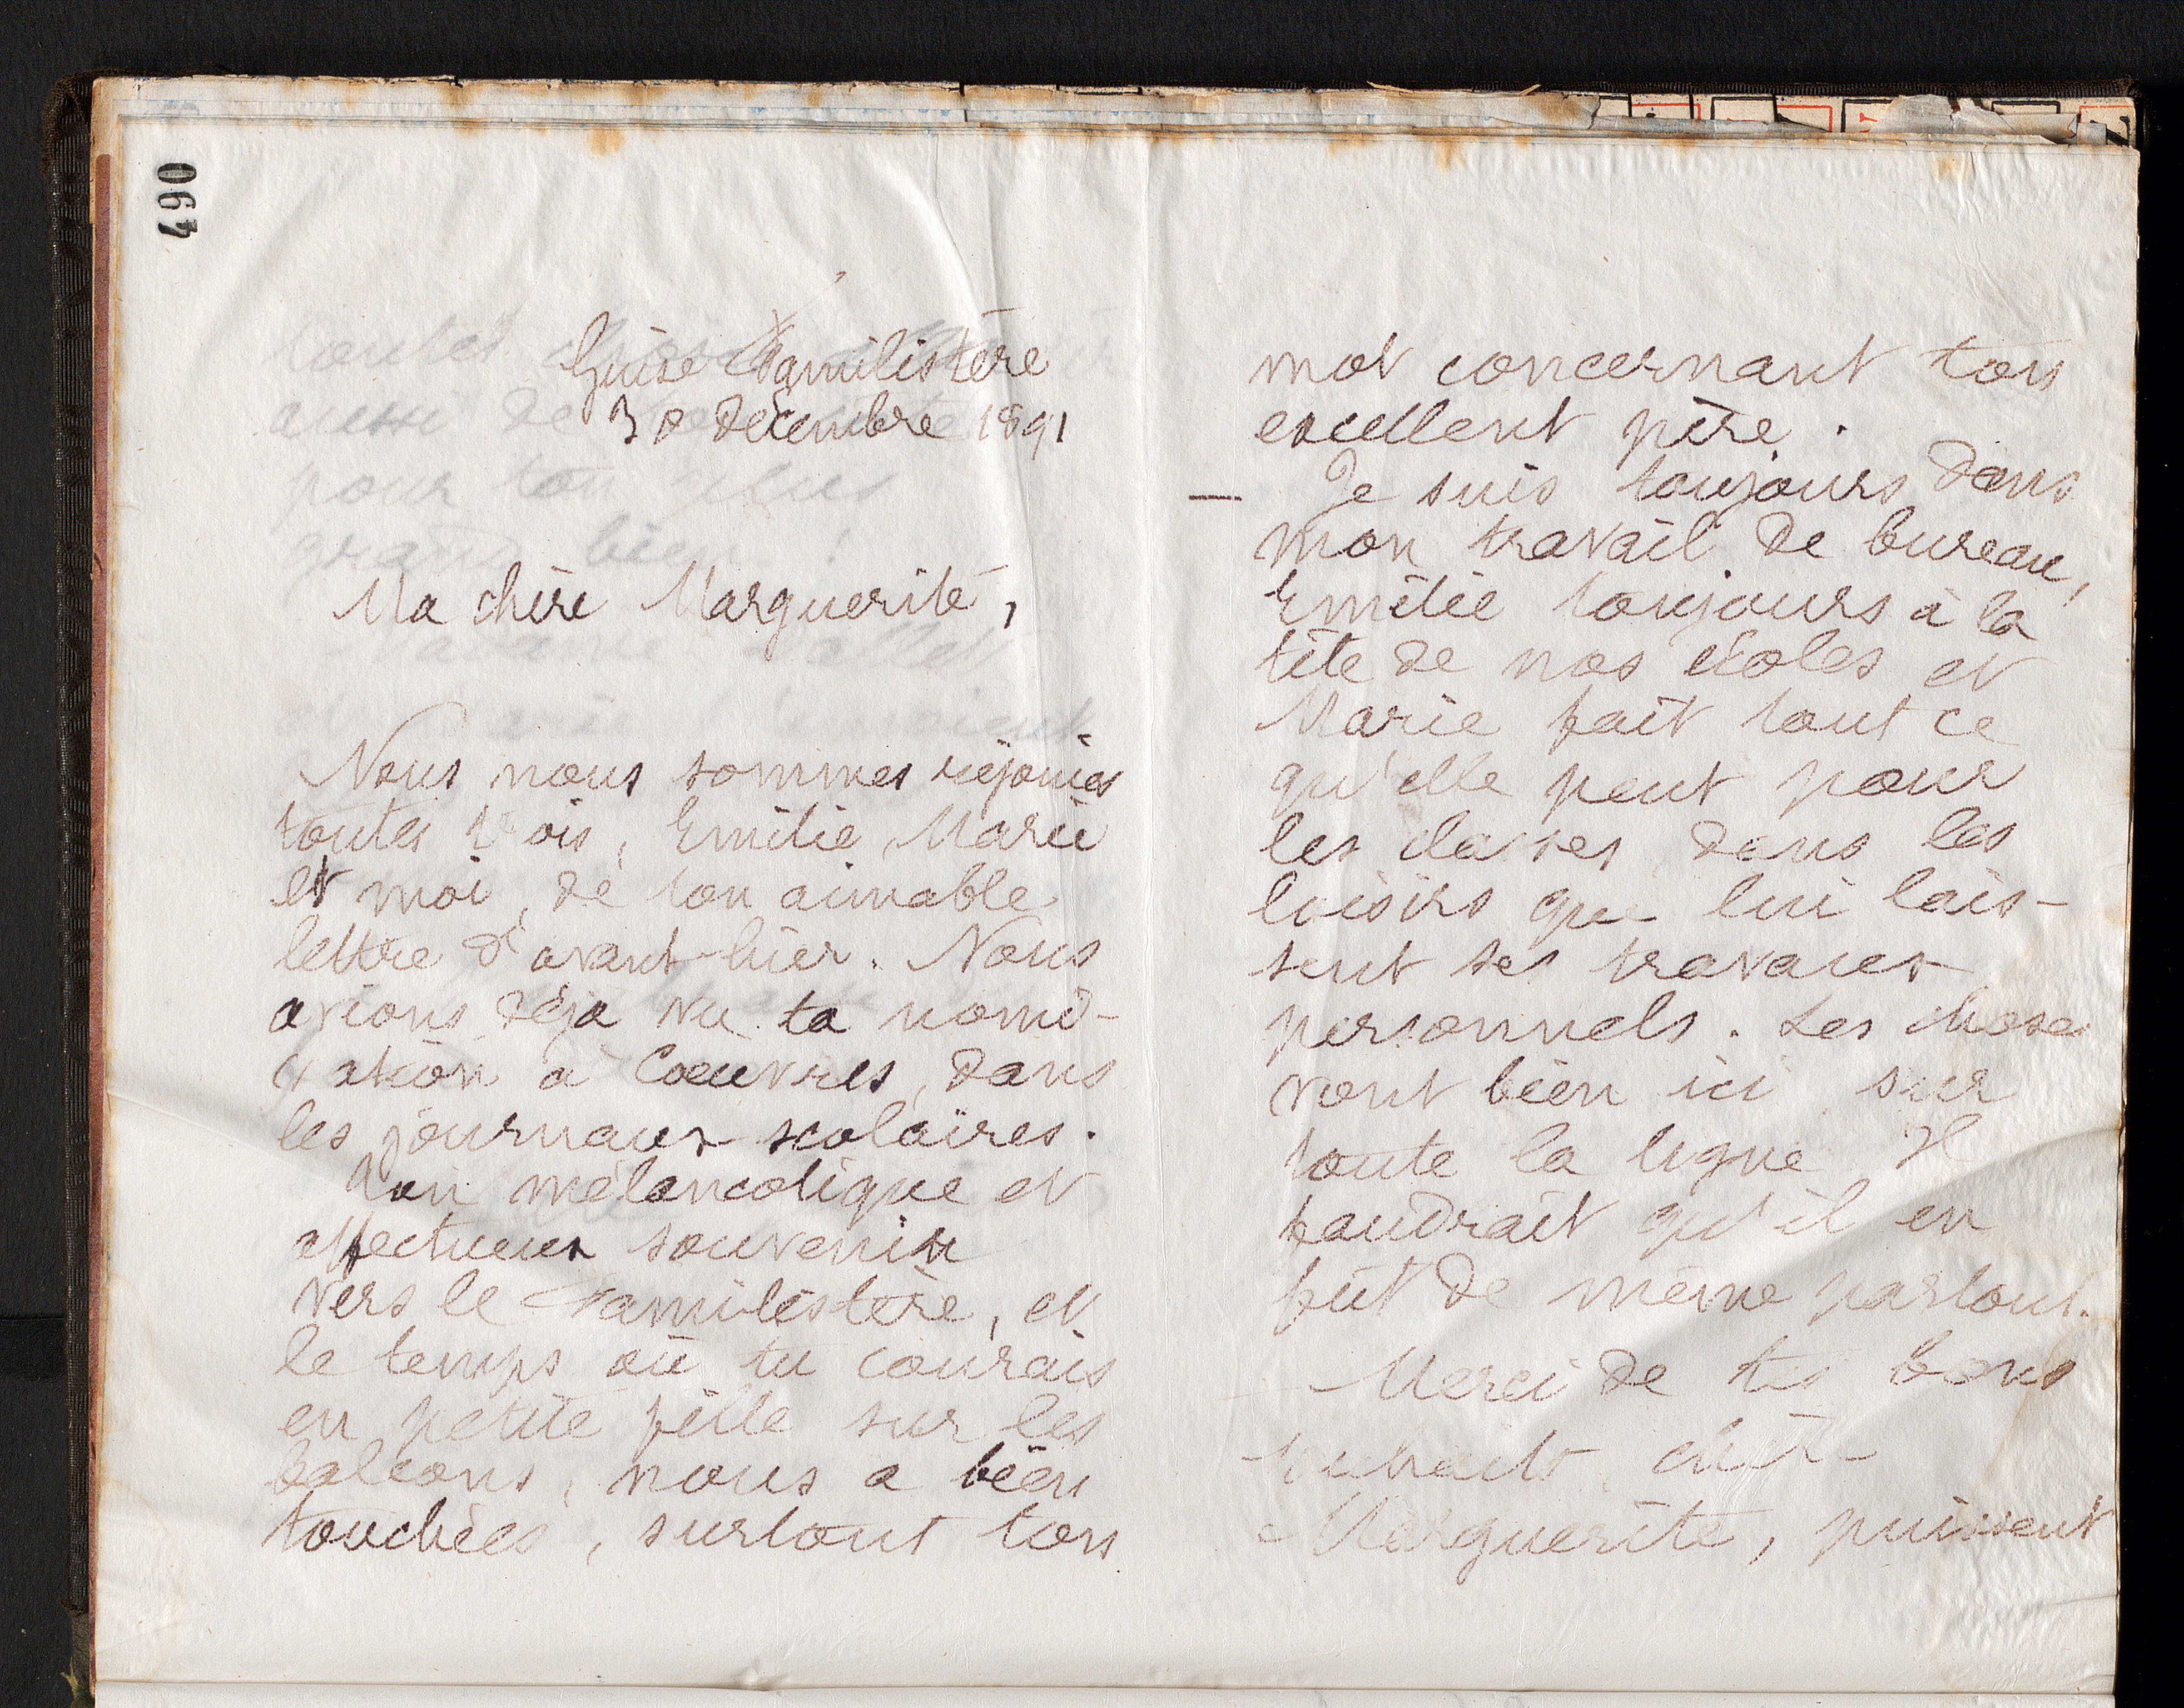 490
Guise Familistère
30 décembre 1891
Ma chère Marguerite,
Nous nous sommes réjouies
toutes trois, Emilie, Marie
et moi, de ton aimable
lettre d'avant-hier. Nous
avions déjà vu ta nomi-
nation à Coeuvres, dans
les journaux scolaires.
Ton mélancolique et
affectueux souvenir
vers le Familistère, et
le temps où tu courais
en petite fille sur les
balcons, nous a bien
touchées, surtout ton
mot concernant ton
excellent père.
— Je suis toujours dans
mon travail de bureau,
Emilie toujours à la
tête de nos écoles et
Marie fait tout ce
qu'elle peut pour
les classes dans les
loisirs que lui lais-
sent ses travaux
personnels. Les choses
vont bien ici sur
toute la ligne. Il
faudrait qu'il en
fût de même partout.
Merci de tes bons
souhaits, chère
Marguerite, puissent